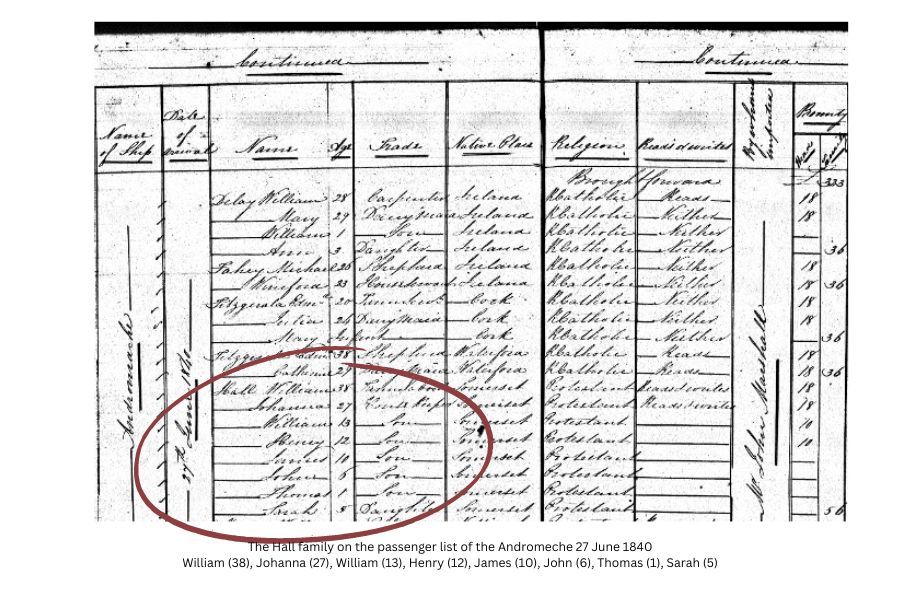 Continued Continued
Name of Ship Date of Arrival Name Age Trade Native Place Religion Reads or writes By whom imported Bounty
Brought forward 333
Delay William 28 Carpenter Ireland RCatholic Reads 18
Mary 29 Dairymaid Ireland RCatholic Neither 18
William 1 Son Ireland RCatholic Neither
Ann 3 Daughter Ireland RCatholic Neither 36
Fahey Michael 26 Shepherd Ireland RCatholic Neither 18
Winifred 23 Ireland RCatholic Neither 18 36
Fitzgerald Edmd 20 Cork RCatholic Neither 18
Julia 24 Dairymaid Cork RCatholic Neither 18
Mary Infant Cork RCatholic Neither 36
38 Shepherd Waterford RCatholic Reads 18
Catherine 29 Waterford RCatholic Reads 18 36
Hall William 38 Somerset Protestant Reads & writes 18
Johanna 27 Somerset Protestant Reads & writes 18
William 13 Son Somerset Protestant 10
Henry 12 Son Somerset Protestant 10
James 10 Son Somerset Protestant
John 6 Son Somerset Protestant
Thomas 1 Son Somerset Protestant
Sarah 5 Daughter Somerset Protestant 56
Andromache
27th June 1840
Mr John Marshall
The Hall family on the passenger list of the Andromeche 27 June 1840
William (38), Johanna (27), William (13), Henry (12), James (10), John (6), Thomas (1), Sarah (5)